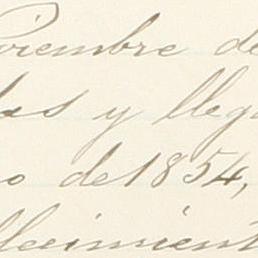 oviembre de
los y llega
o de 1854,
llecimient